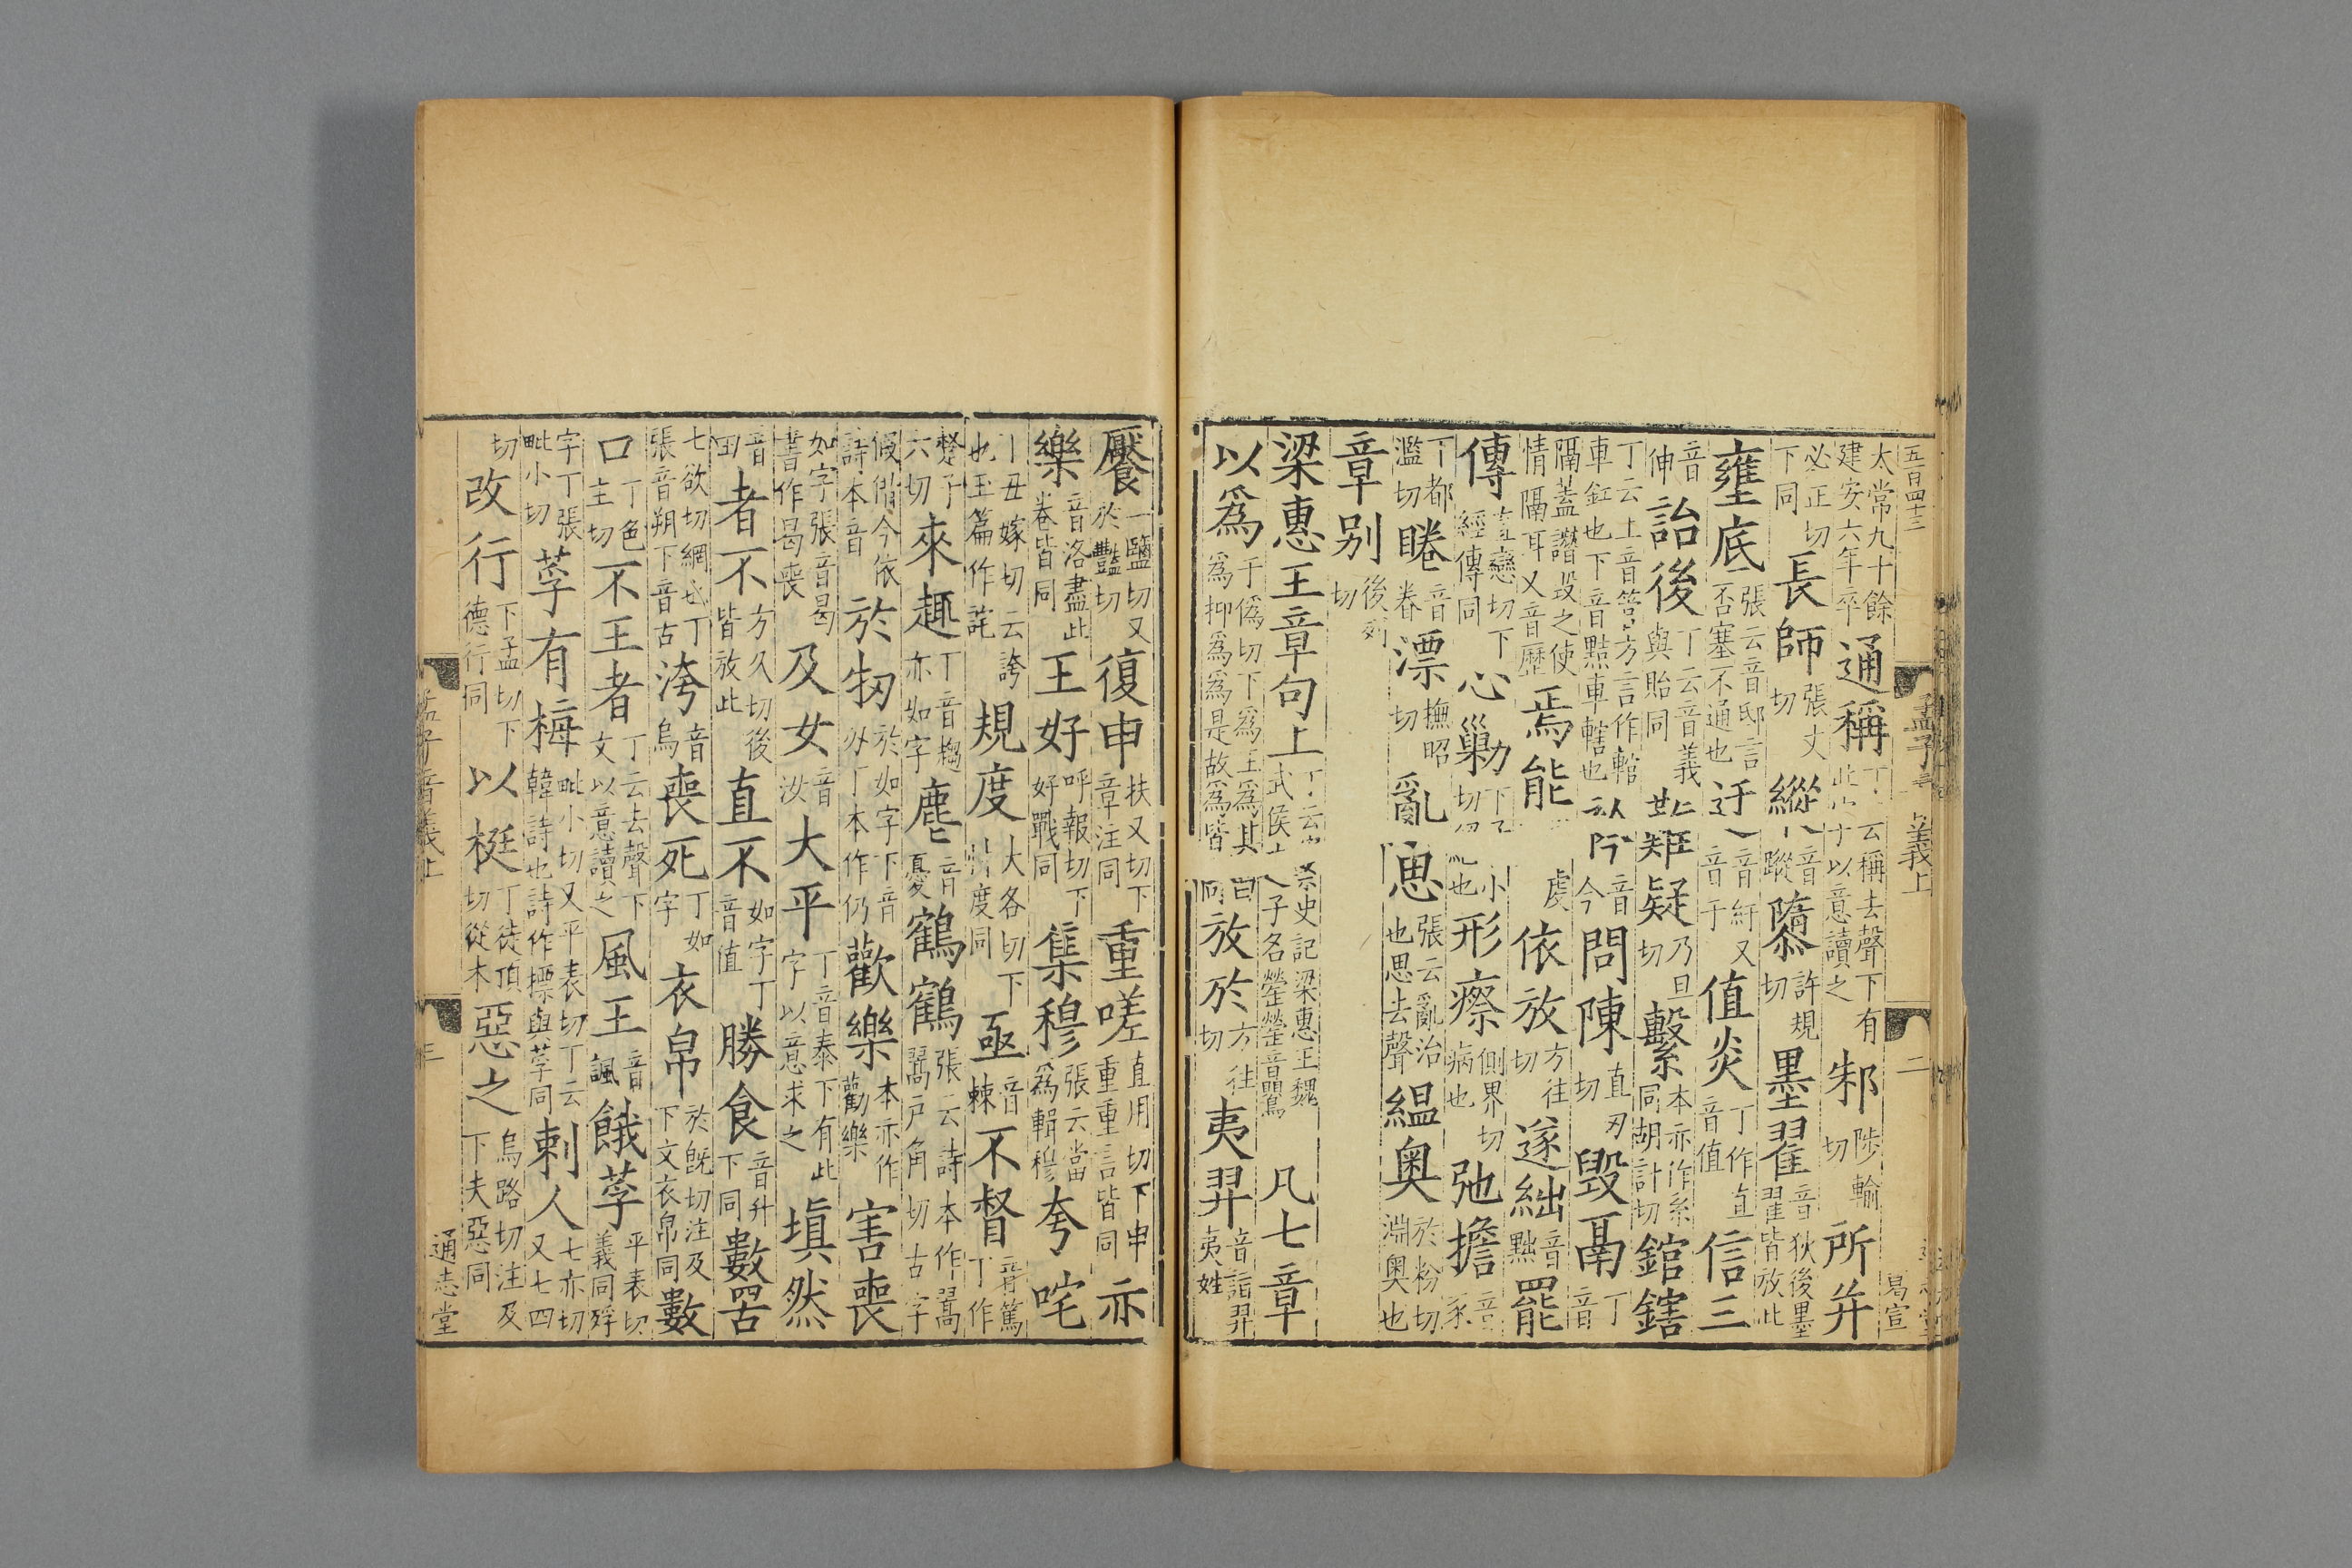 五百四十三
孟子 義上 二 易宣
太常九十餘建安六年卒通稱 云稱去聲下有 以意讀之邾陟輸切所并
必正切下同長師張丈切縱音蹤隳許規切墨翟音狄後墨翟皆放此
壅底張云音邸言否塞不通也迂音紆又音于值炎丁作直音值信三
音伸詒後丁云音義與貽同 難疑乃旦切繫本亦作系同胡計切錧鎋
丁云上音管方言作輨車釭也下音黠車轄也 音今問陳直刃切毀鬲丁音
隔蓋譖毀之使情隔耳又音歷焉能 虔依放方往切遂絀音黜罷
傳直戀切下經傳同心勦 小 也形瘵側界切病也弛擔
丁都濫切睠音眷漂撫昭切亂思張云亂治也思去聲縕奥於粉切淵奥也
章別後列切
梁惠王章句上丁云 史記梁惠王魏武侯 子名罃罃音鸎凡七章
以爲于僞切下爲王爲其爲抑爲爲是故爲皆同放於方往切夷羿音詣羿夷姓
饜一鹽切又於豔切復申扶又切下章注同重嗟直用切下申重重言皆同亦
樂音洛盡此卷皆同王好呼報切下好戰同集穆張云當爲輯穆夸咤
丑嫁切云誇也玉篇作詫規度大各切下 度同亟音棘不督音篤丁作
楚子六切來趣丁音趨亦如字麀音憂鶴鶴張云詩本作翯翯戶角切古字
假借今依詩本音於牣於如字下音刃丁本作仍歡樂本亦作勸樂害喪
如字張音曷書作曷喪及女音汝大平丁音泰下有此字以意求之填然
音田者不方久切後皆放此直不如字丁音值勝食音升下同數罟
七欲切網也丁張音朔下音古洿音烏喪死丁如字衣帛於旣切注及下文衣帛同數
口丁色主切不王者丁云去聲下文以意讀之風王音諷餓莩平表切義同殍
字丁張毗小切莩有梅毗小切又平表切丁云韓詩也詩作摽與莩同刺人七亦切又七四
切改行下孟切下德行同以梃丁徒頂切從木惡之烏路切注及下夫惡同
孟子音義上 三 通志堂